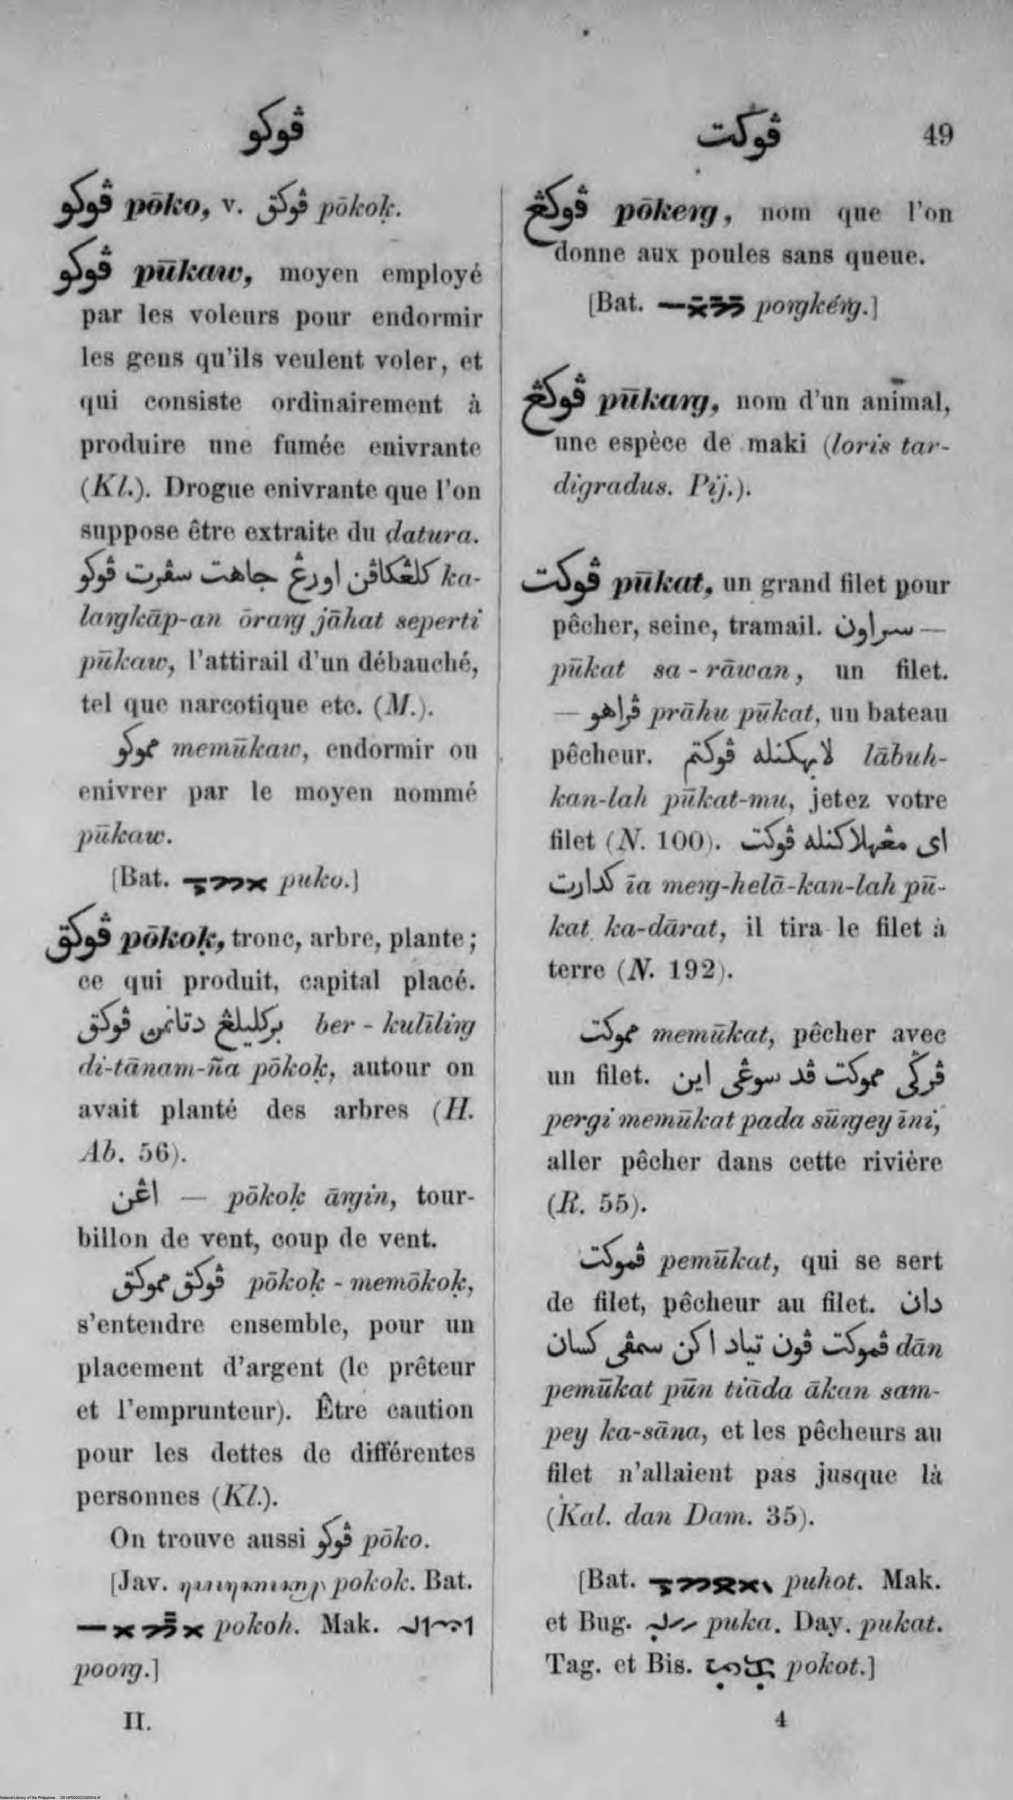 ڤوكو
ڤوكت 49
ڤوكو pōko, v. ڤوكق pōkoḳ.
ڤوكو pūkaw, moyen employé
par les voleurs pour endormir
les gens qu'ils veulent voler, et
qui consiste ordinairement à
produire une fumée enivrante
(Kl.). Drogue enivrante que l'on
suppose être extraite du datura.
كلڠكاڤن اورڠ جاهت سڤرت ڤوكو ka-
langkāp-an ōrang jāhat seperti
pūkaw, l'attirail d'un débauché,
tel que narcotique etc. (M.).
مموكو memūkaw, endormir ou
enivrer par le moyen nommé
pūkaw.
[Bat. puko.]
ڤوكق pōkoḳ, tronc, arbre, plante;
ce qui produit, capital placé.
بركليلڠ دتانمن ڤوكق ber-kulīling
di-tānam-ña pōkoḳ, autour on
avait planté des arbres (H.
Ab. 56).
اڠن — pōkoḳ āngin, tour-
billon de vent, coup de vent.
ڤوكق مموكق pōkoḳ-memōkoḳ,
s'entendre ensemble, pour un
placement d'argent (le prêteur
et l'emprunteur). Être caution
pour les dettes de différentes
personnes (Kl.).
On trouve aussi ڤوكو pōko.
[Jav. pokok. Bat.
pokoh. Mak.
poong.]
II.
ڤوكڠ pōkeng, nom que l'on
donne aux poules sans queue.
[Bat. pongkéng.]
ڤوكڠ pūkang, nom d'un animal,
une espèce de maki (loris tar-
digradus. Pij.).
ڤوكت pūkat, un grand filet pour
pêcher, seine, tramail. سراون —
pūkat sa-rāwan, un filet.
— ڤراهو prāhu pūkat, un bateau
pêcheur. لابهكنله ڤوكتم lābuh-
kan-lah pūkat-mu, jetez votre
filet (N. 100). اى مڠهلاكنله ڤوكت
كدارت īa meng-helā-kan-lah pū-
kat ka-dārat, il tira le filet à
terre (N. 192).
مموكت memūkat, pêcher avec
un filet. ڤركى مموكت ڤد سوڠى اين
pergi memūkat pada sūngey īni,
aller pêcher dans cette rivière
(R. 55).
ڤموكت pemūkat, qui se sert
de filet, pêcheur au filet. دان
ڤموكت ڤون تياد اكن سمڤى كسان dān
pemūkat pūn tiāda ākan sam-
pey ka-sāna, et les pêcheurs au
filet n'allaient pas jusque là
(Kal. dan Dam. 35).
[Bat. puhot. Mak.
et Bug. puka. Day. pukat.
Tag. et Bis. pokot.]
4